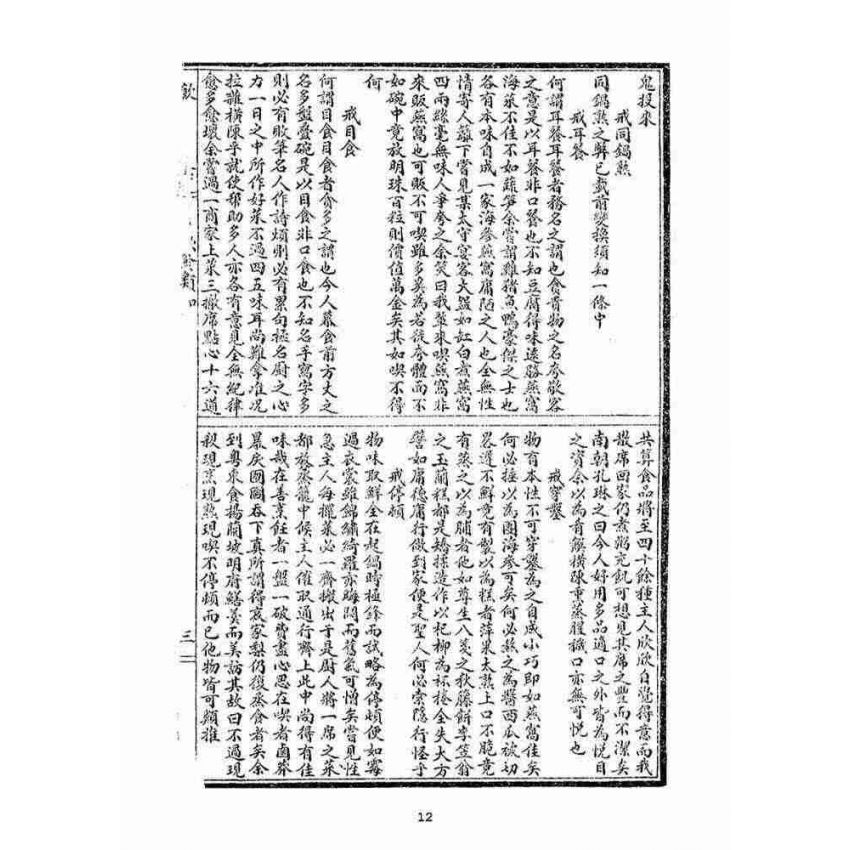 鬼投來
戒同鍋熟
同鍋熟之弊已載前變換須知一條中
戒耳餐
何謂耳餐耳餐者務名之謂也食貴物之名夸敬客
之意是以耳餐非口餐也不知豆腐得味遠勝燕窩
海菜不佳不如蔬筍余嘗謂雞猪魚鴨豪傑之士也
各有本味自成一家海參燕窩庸陋之人也全無性
情寄人籬下嘗見某太守宴客大盌如缸白煮燕窩
四兩絲毫無味人爭夸之余笑曰我輩來喫燕窩非
來販燕窩也可販不可喫雖多奚為若徒夸體面不
如碗中竟放明珠百粒則價值萬金矣其如喫不得
何
戒目食
何謂目食目食者貪多之謂也今人慕食前方丈之
名多盤疊碗是以目食非口食也不知名手寫字多
則必有敗筆名人作詩煩則必有累句極名廚之心
力一日之中所作好菜不過四五味耳尚難拿准况
拉雜橫陳乎就使幫助多人亦各有意見全無紀律
愈多愈壞余嘗過一商家上菜三撤席點心十六道
共算食品將至四十餘種主人欣欣自覺得意而我
散席回家仍煮粥充飢可想見其席之豐而不潔矣
南朝孔琳之曰今人好用多品適口之外皆為悅目
之資余以為肴饌橫陳熏蒸腥穢口亦無可悅也
戒穿鑿
物有本性不可穿鑿為之自成小巧即如燕窩佳矣
何必捶以為團海參可矣何必熬之為醬西瓜被切
畧遲不鮮竟有製以為糕者蘋果太熟上口不脆竟
有蒸之以為脯者他如尊生八箋之秋藤餅李笠翁
之玉蘭糕都是矯揉造作以杞柳為杯棬全失大方
譬如庸德庸行做到家便是聖人何必索隱行怪乎
戒停頓
物味取鮮全在起鍋時極鋒而試略為停頓便如霉
過衣裳雖錦繡綺羅亦晦悶而舊氣可憎矣嘗見性
急主人每擺菜必一齊搬出于是廚人將一席之菜
都放蒸籠中候主人催取通行齊上此中尚得有佳
味哉在善烹飪者一盤一碗費盡心思在喫者鹵莽
暴戾囫圇吞下真所謂得哀家梨仍復蒸食者矣余
到粵東食揚蘭坡明府鱔羮而美訪其故曰不過現
殺現烹現熟現喫不停頓而已他物皆可類推
飲
三
12